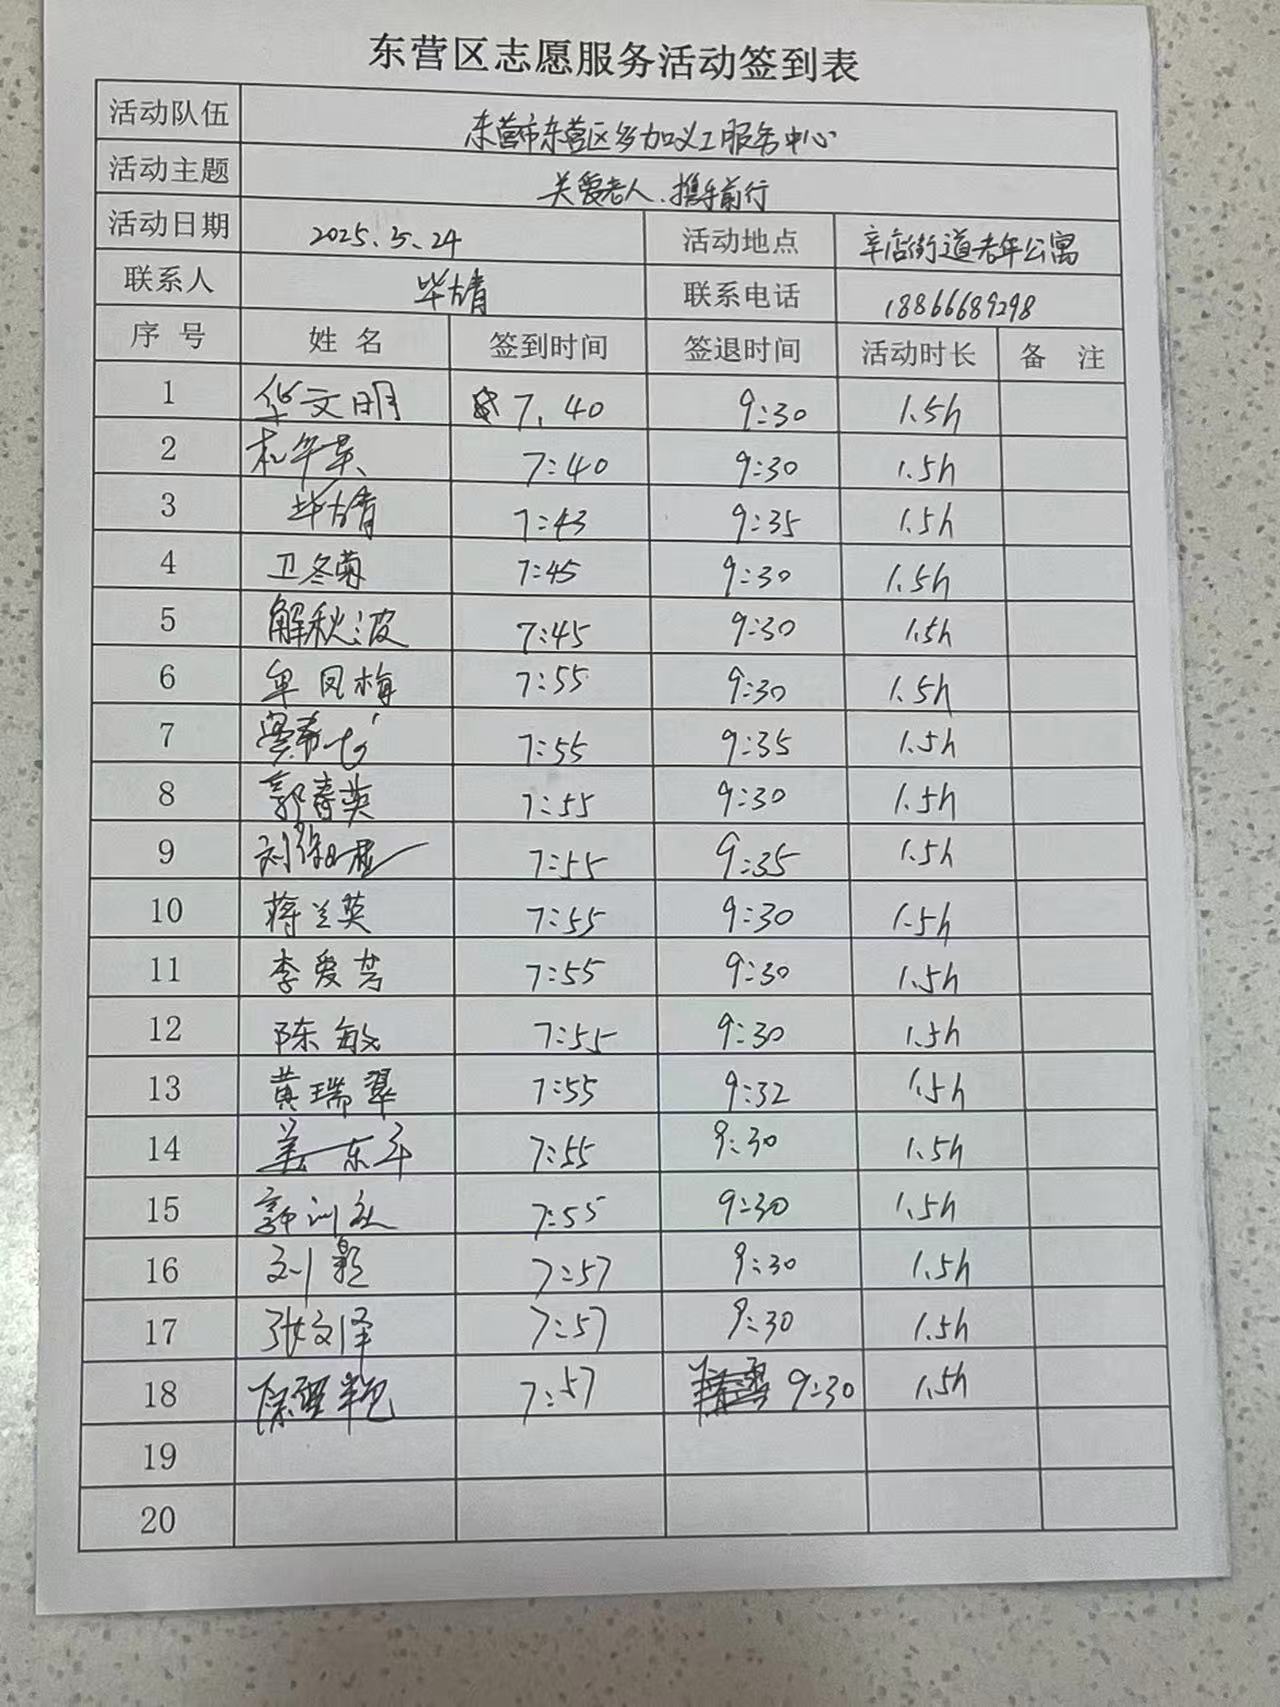 东营区志愿服务活动签到表
活动队伍 东营市东营区多加义工服务中心
活动主题 关爱老人、携手前行
活动日期 2025.5.24 活动地点 辛店街道老年公寓
联系人 毕婧 联系电话 18866689298
序号 姓名 签到时间 签退时间 活动时长 备注
1 华文明 7.40 9:30 1.5h
2 杜年英 7:40 9:30 1.5h
3 毕婧 7:43 9:35 1.5h
4 卫冬菊 7:45 9:30 1.5h
5 解秋波 7:45 9:30 1.5h
6 单凤梅 7:55 9:30 1.5h
7 7:55 9:35 1.5h
8 郭春英 7:55 9:30 1.5h
9 刘 7:55 9:35 1.5h
10 蒋兰英 7:55 9:30 1.5h
11 李爱芳 7:55 9:30 1.5h
12 陈敏 7:55 9:30 1.5h
13 黄瑞翠 7:55 9:32 1.5h
14 姜东平 7:55 9:30 1.5h
15 郭 7:55 9:30 1.5h
16 刘影 7:57 9:30 1.5h
17 张文泽 7:57 9:30 1.5h
18 7:57 9:30 1.5h
19
20